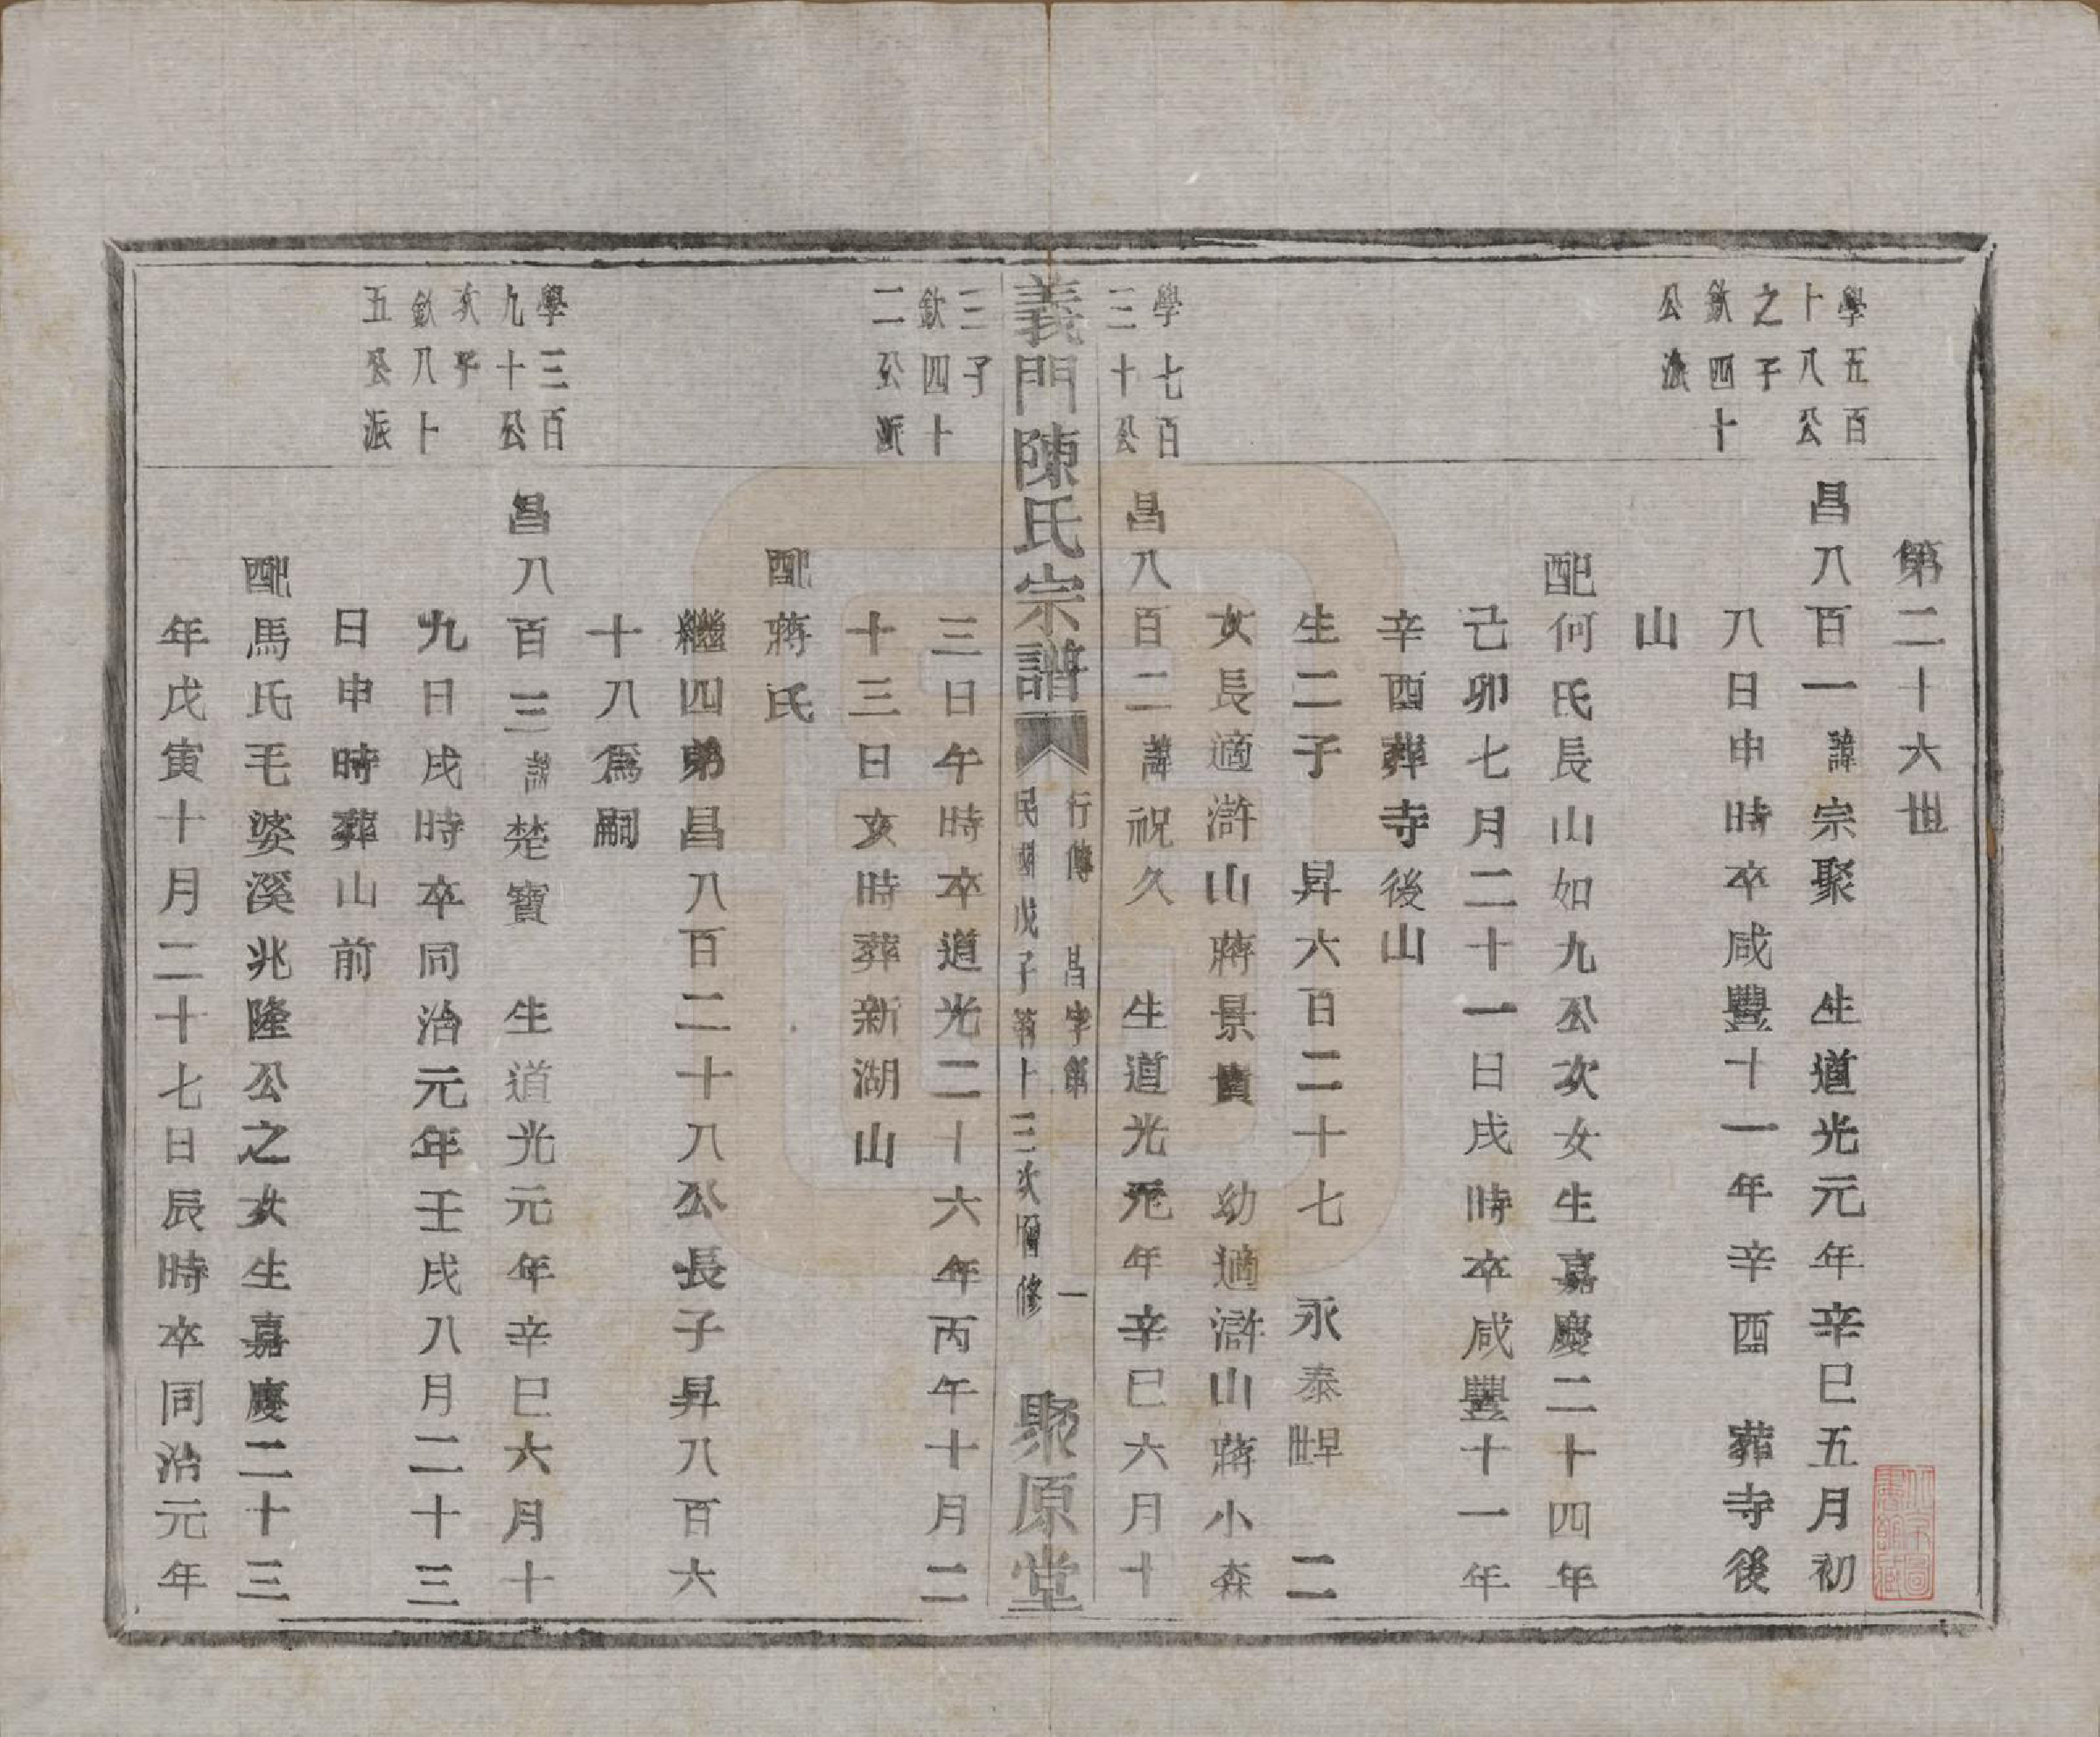 第二十六世
學五百
十八公
之子
欽四十
公派
昌八百一諱宗聚　生道光元年辛巳五月初
八日申時卒咸豐十一年辛酉　葬寺後
山
配何氏長山如九公次女生嘉慶二十四年
己卯七月二十一日戌時卒咸豐十一年
辛酉葬寺後山
生二子　昇六百二十七　永泰　二
女長適滸山蔣景貴　幼適滸山蔣小森
學七百
三十公
三子
欽四十
二公派
昌八百二諱祝久　生道光元年辛巳六月十
義門陳氏宗譜
行傳　昌字第　一
民國戊子第十三次增修
聚原堂
三日午時卒道光二十六年丙午十月二
十三日亥時葬新湖山
配蔣氏
繼四弟昌八百二十八公長子昇八百六
十八為嗣
學三百
九十公
次子
欽八十
五公派
昌八百三諱楚寶　生道光元年辛巳六月十
九日戌時卒同治元年壬戌八月二十三
日申時葬山前
配馬氏毛婆溪兆隆公之女生嘉慶二十三
年戊寅十月二十七日辰時卒同治元年